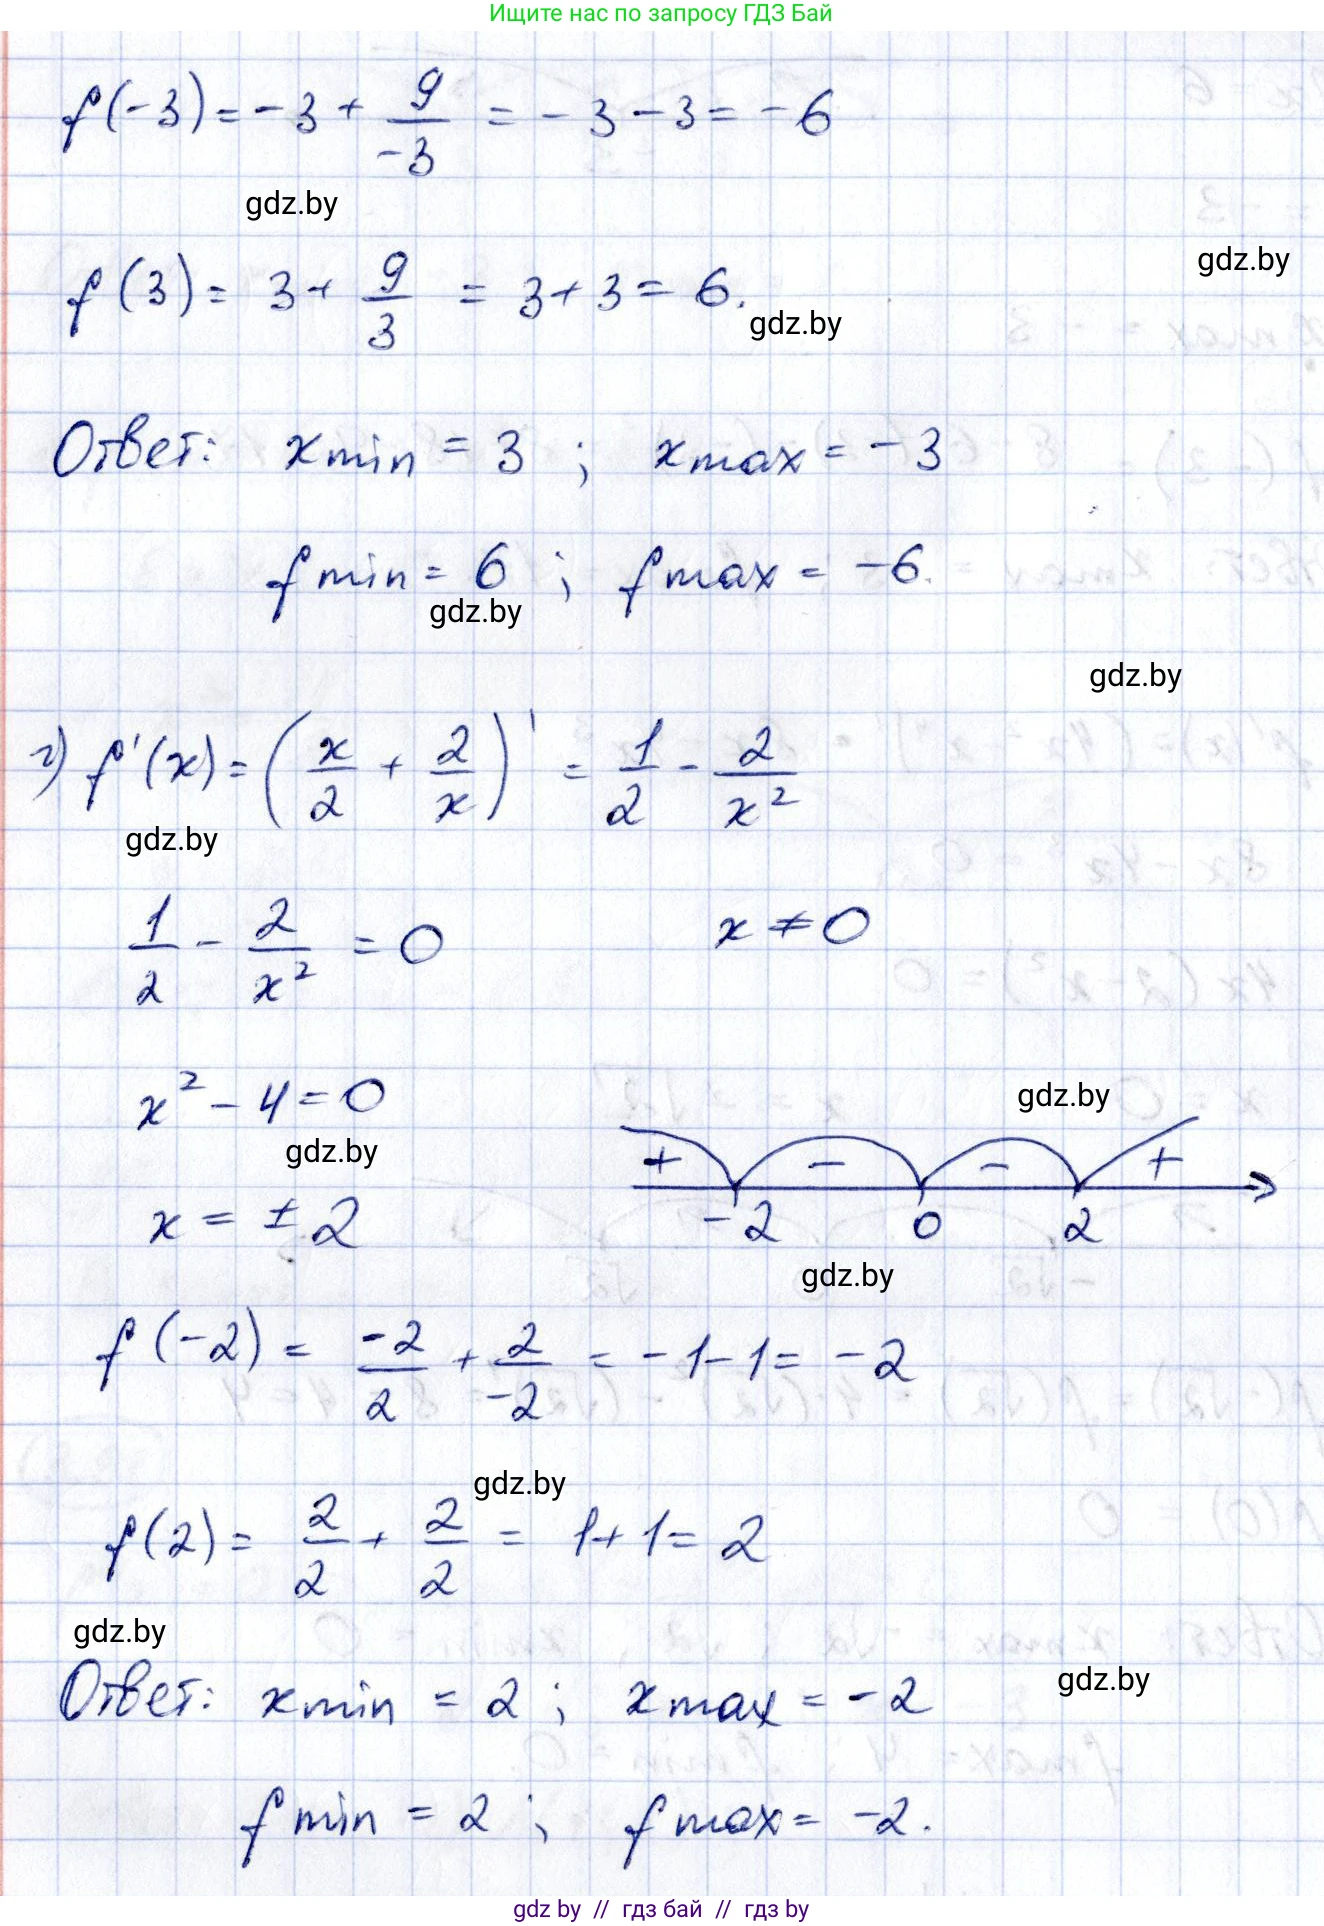 Ищите нас по запросу ГДЗ Бай
f(-3) = -3 + 9/-3 = -3 - 3 = -6
gdz.by
gdz.by
f(3) = 3 + 9/3 = 3 + 3 = 6.
gdz.by
Ответ: x min = 3 ; x max = -3
f min = 6 ; f max = -6.
gdz.by
gdz.by
г) f'(x) = (x/2 + 2/x)' = 1/2 - 2/x²
gdz.by
1/2 - 2/x² = 0 x ≠ 0
x² - 4 = 0
gdz.by
gdz.by
+ - - +
x = ± 2
-2 0 2
gdz.by
f(-2) = -2/2 + 2/-2 = -1 - 1 = -2
gdz.by
f(2) = 2/2 + 2/2 = 1 + 1 = 2
gdz.by
Ответ: x min = 2 ; x max = -2
gdz.by
f min = 2 ; f max = -2.
gdz.by // гдз бай // гдз by